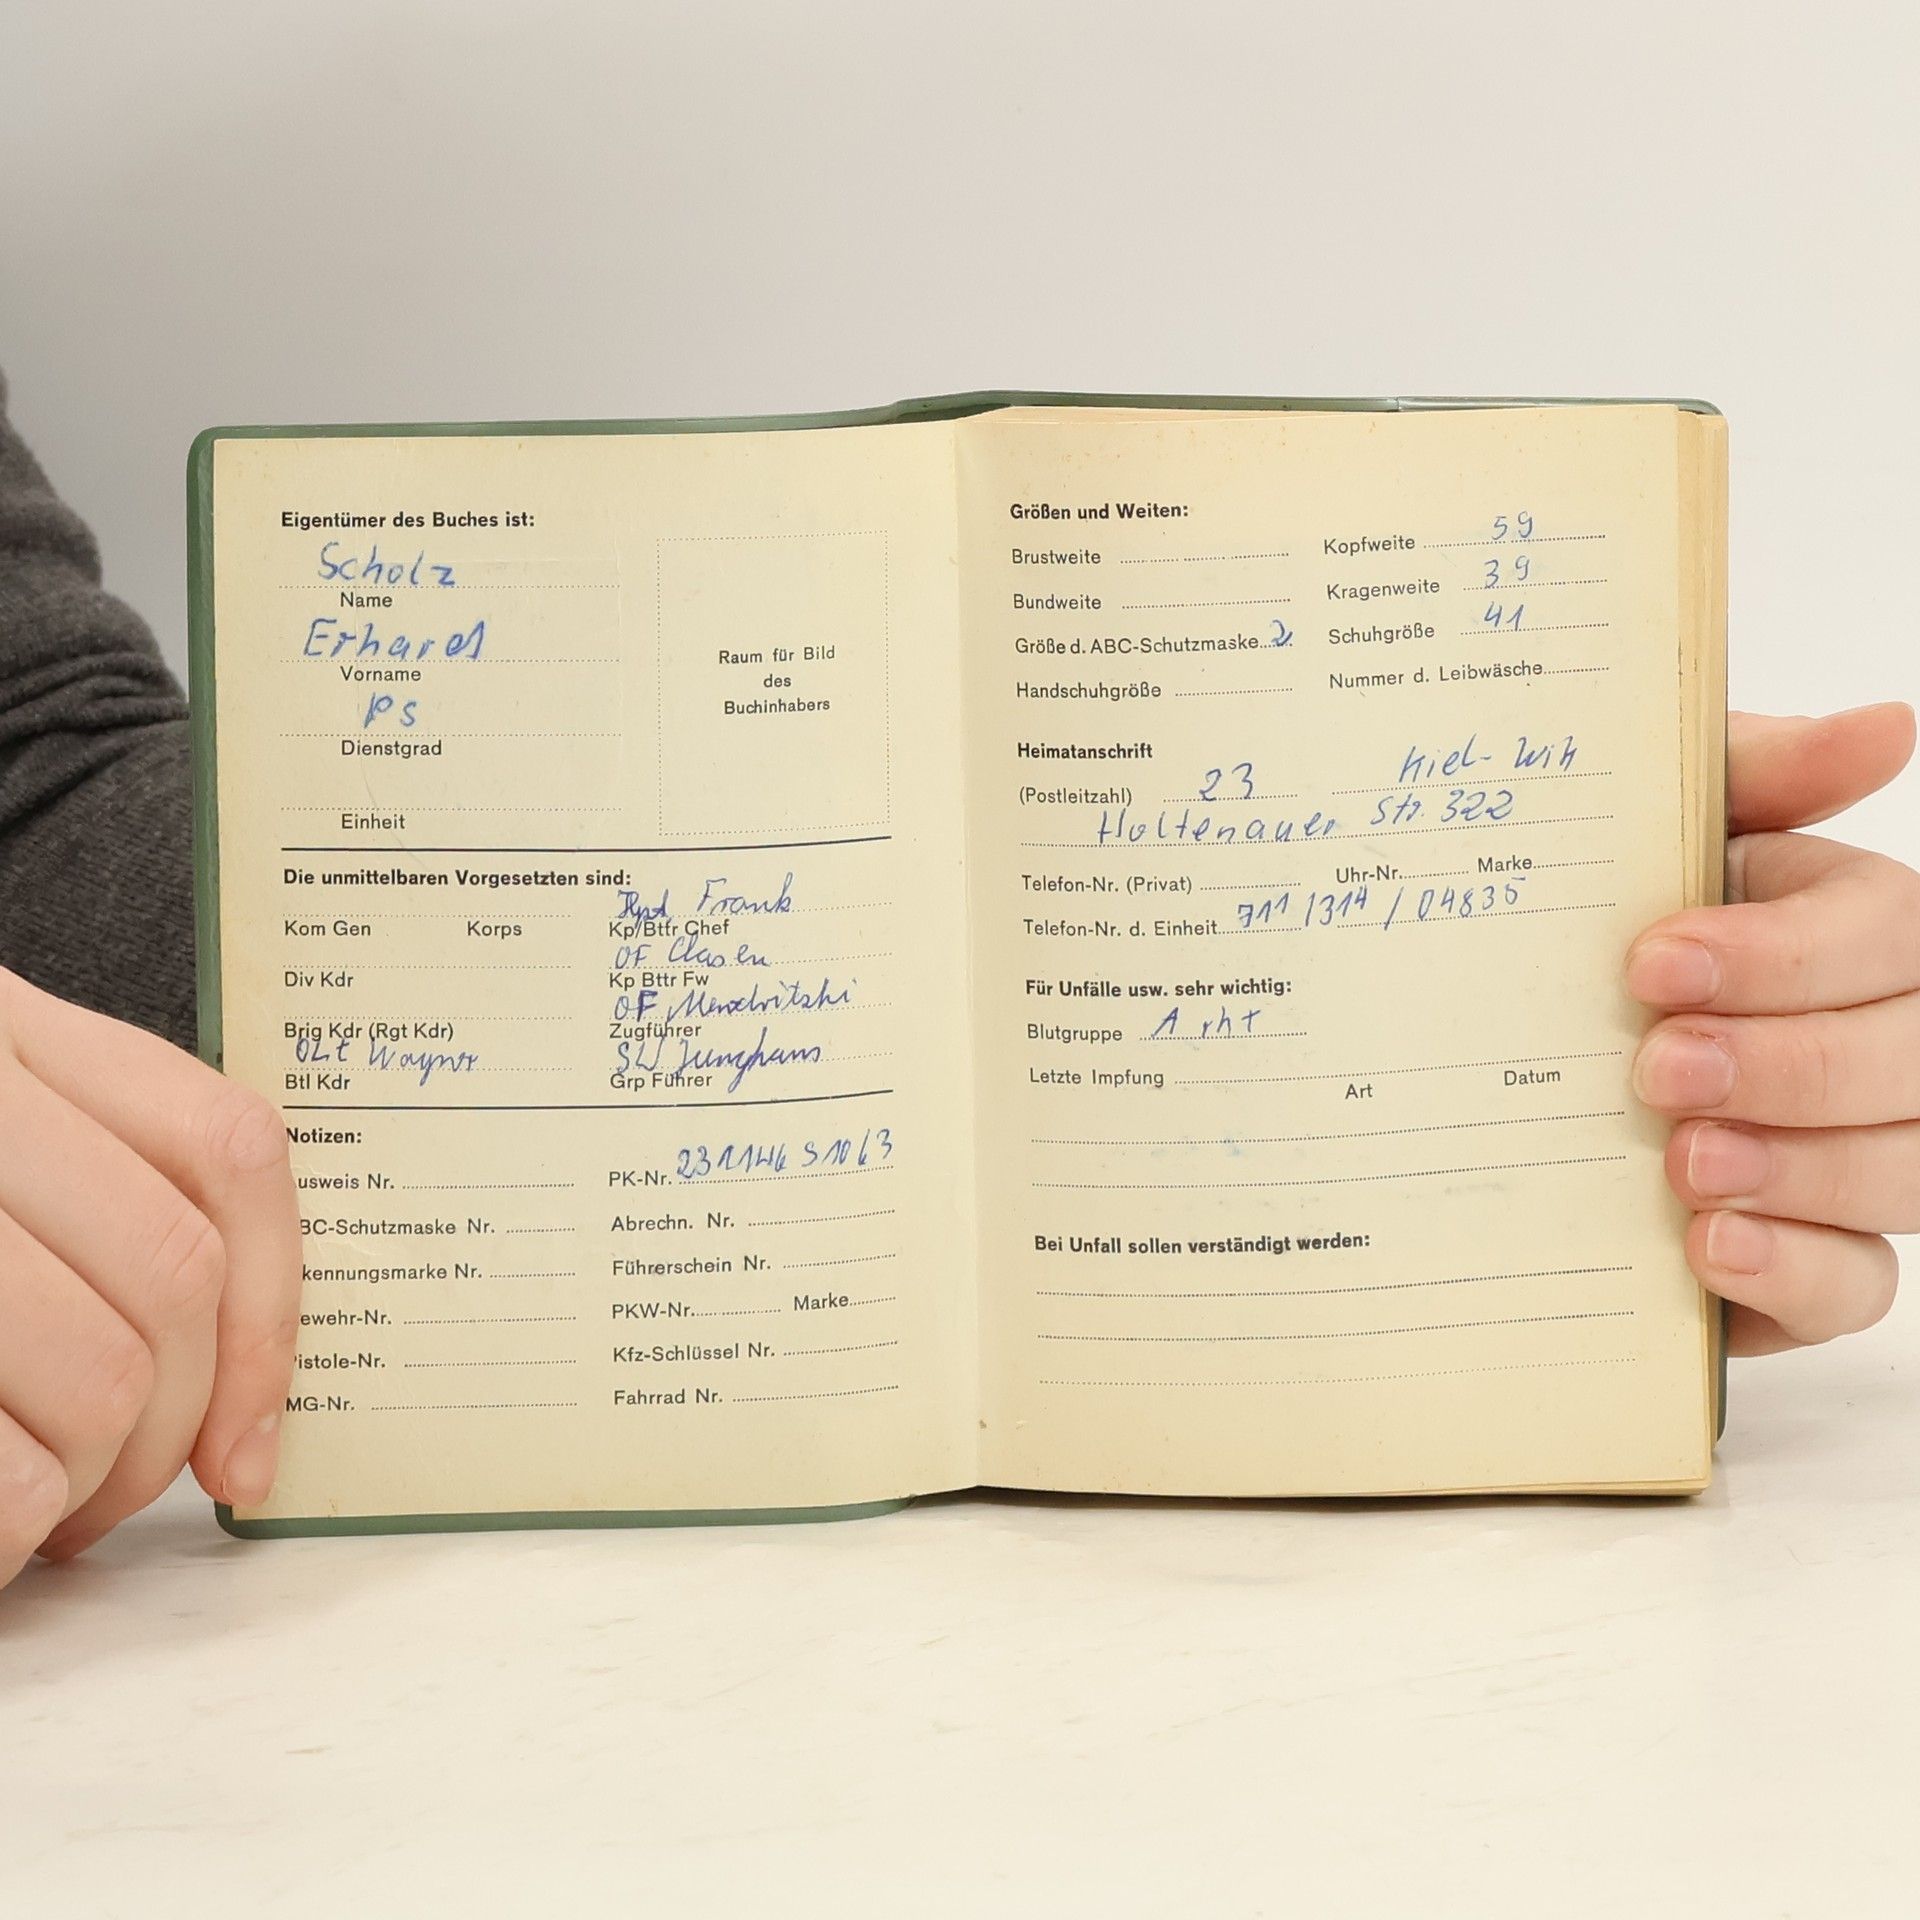 Eigentümer des Buches ist:
Scholz
Name
Erhard
Vorname
Ps
Dienstgrad
Einheit
Raum für Bild
des
Buchinhabers
Die unmittelbaren Vorgesetzten sind:
Hpt Frank
Kom Gen Korps Kp/Bttr Chef
OF Clasen
Div Kdr Kp Bttr Fw
OF
Brig Kdr (Rgt Kdr) Zugführer
OLt Wagner SU Junghans
Btl Kdr Grp Führer
Notizen:
usweis Nr. PK-Nr.
BC-Schutzmaske Nr. Abrechn. Nr.
kennungsmarke Nr. Führerschein Nr.
ewehr-Nr. PKW-Nr. Marke
istole-Nr. Kfz-Schlüssel Nr.
MG-Nr. Fahrrad Nr.
Größen und Weiten:
Brustweite Kopfweite 59
Bundweite Kragenweite 39
Größe d. ABC-Schutzmaske 2 Schuhgröße 41
Handschuhgröße Nummer d. Leibwäsche
Heimatanschrift
(Postleitzahl) 23 Kiel-Wik
Holtenauer Str. 322
Telefon-Nr. (Privat) Uhr-Nr. Marke
Telefon-Nr. d. Einheit 711/314 / 04835
Für Unfälle usw. sehr wichtig:
Blutgruppe A rh+
Letzte Impfung
Art Datum
Bei Unfall sollen verständigt werden: